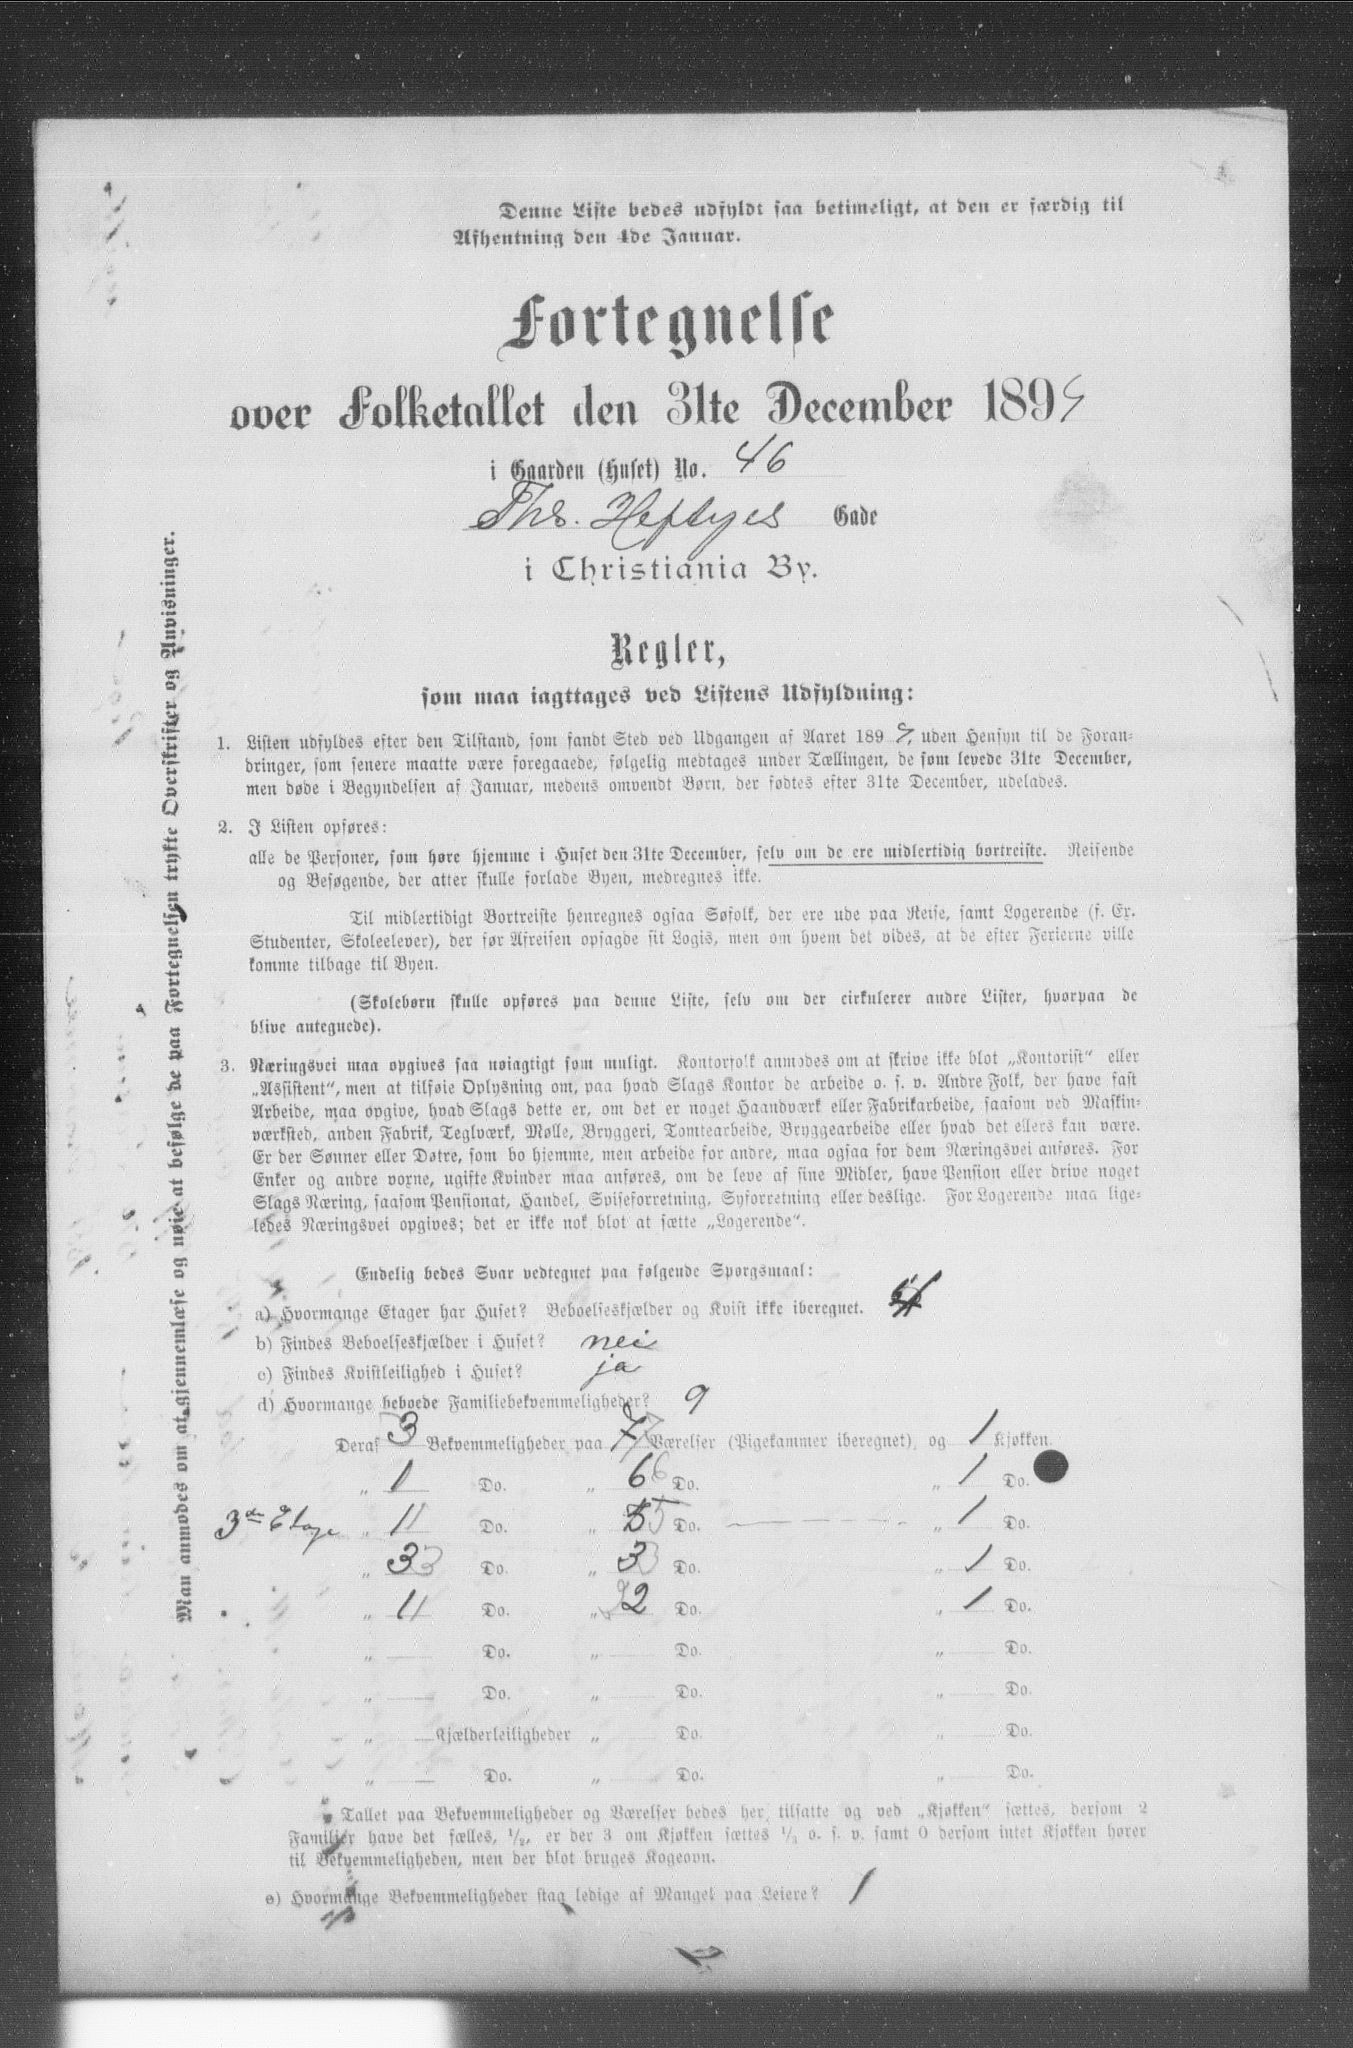 Denne Liste bedes udfyldt saa betimeligt, at den er færdig til
Afhentning den 4de Januar.
Fortegnelse
over Folketallet den 31te December 1899
i Gaarden (Huset) No. 46
Ths. Heftyes Gade
i Christiania By.
Regler,
som maa iagttages ved Listens Udfyldning:
1. Listen udfyldes efter den Tilstand, som fandt Sted ved Udgangen af Aaret 1899, uden Hensyn til de Foran-
dringer, som senere maatte være foregaaede, følgelig medtages under Tællingen, de som levede 31te December,
men døde i Begyndelsen af Januar, medens omvendt Børn, der fødtes efter 31te December, udelades.
2. I Listen opføres:
alle de Personer, som høre hjemme i Huset den 31te December, selv om de ere midlertidig bortreiste. Reisende
og Besøgende, der atter skulle forlade Byen, medregnes ikke.
Til midlertidigt Bortreiste henregnes ogsaa Søfolk, der ere ude paa Reise, samt Logerende (f. Ex.
Studenter, Skoleelever), der før Afreisen opsagde sit Logis, men om hvem det vides, at de efter Ferierne ville
komme tilbage til Byen.
(Skolebørn skulle opføres paa denne Liste, selv om der cirkulerer andre Lister, hvorpaa de
blive antegnede).
3. Næringsvei maa opgives saa nøiagtigt som muligt. Kontorfolk anmodes om at skrive ikke blot „Kontorist“ eller
„Assistent“, men at tilføie Oplysning om, paa hvad Slags Kontor de arbeide o. s. v. Andre Folk, der have fast
Arbeide, maa opgive, hvad Slags dette er, om det er noget Haandværk eller Fabrikarbeide, saasom ved Maskin-
værksted, anden Fabrik, Teglværk, Mølle, Bryggeri, Tomtearbeide, Bryggearbeide eller hvad det ellers kan være.
Er der Sønner eller Døtre, som bo hjemme, men arbeide for andre, maa ogsaa for dem Næringsvei anføres. For
Enker og andre voxne, ugifte Kvinder maa anføres, om de leve af sine Midler, have Pension eller drive noget
Slags Næring, saasom Pensionat, Handel, Spiseforretning, Syforretning eller deslige. For Logerende maa lige-
ledes Næringsvei opgives; det er ikke nok blot at sætte „Logerende“.
Endelig bedes Svar vedtegnet paa følgende Spørgsmaal:
a) Hvormange Etager har Huset? Beboelseskjælder og Kvist ikke iberegnet.
b) Findes Beboelseskjælder i Huset? nei
c) Findes Kvistleilighed i Huset? ja
d) Hvormange beboede Familiebekvemmeligheder? 9
Deraf 3 Bekvemmeligheder paa 7 Værelser (Pigekammer iberegnet), og 1 Kjøkken
„ 1 Do. „ 6 Do. „ 1 Do.
3die Etage „ 1 Do. „ 5 Do. „ 1 Do.
„ 3 Do. „ 3 Do. „ 1 Do.
„ 1 Do. „ 2 Do. „ 1 Do.
„ Do. „ Do. „ Do.
„ Do. „ Do. „ Do.
„ Kjælderleiligheder „ Do. „ Do.
„ Do. „ Do. „ Do.
Tallet paa Bekvemmeligheder og Værelser bedes her tilsatte og ved „Kjøkken“ sættes, dersom 2
Familier have det fælles, 1/2, er der 3 om Kjøkken sættes 1/3 o. s. v. samt 0 dersom intet Kjøkken hører
til Bekvemmeligheden, men der blot bruges Kogeovn.
e) Hvormange Bekvemmeligheder stag ledige af Mangel paa Leiere? 1
Man anmodes om at gjennemlæse og nøie at befølge de paa Fortegnelsen trykte Overskrifter og Anvisninger.